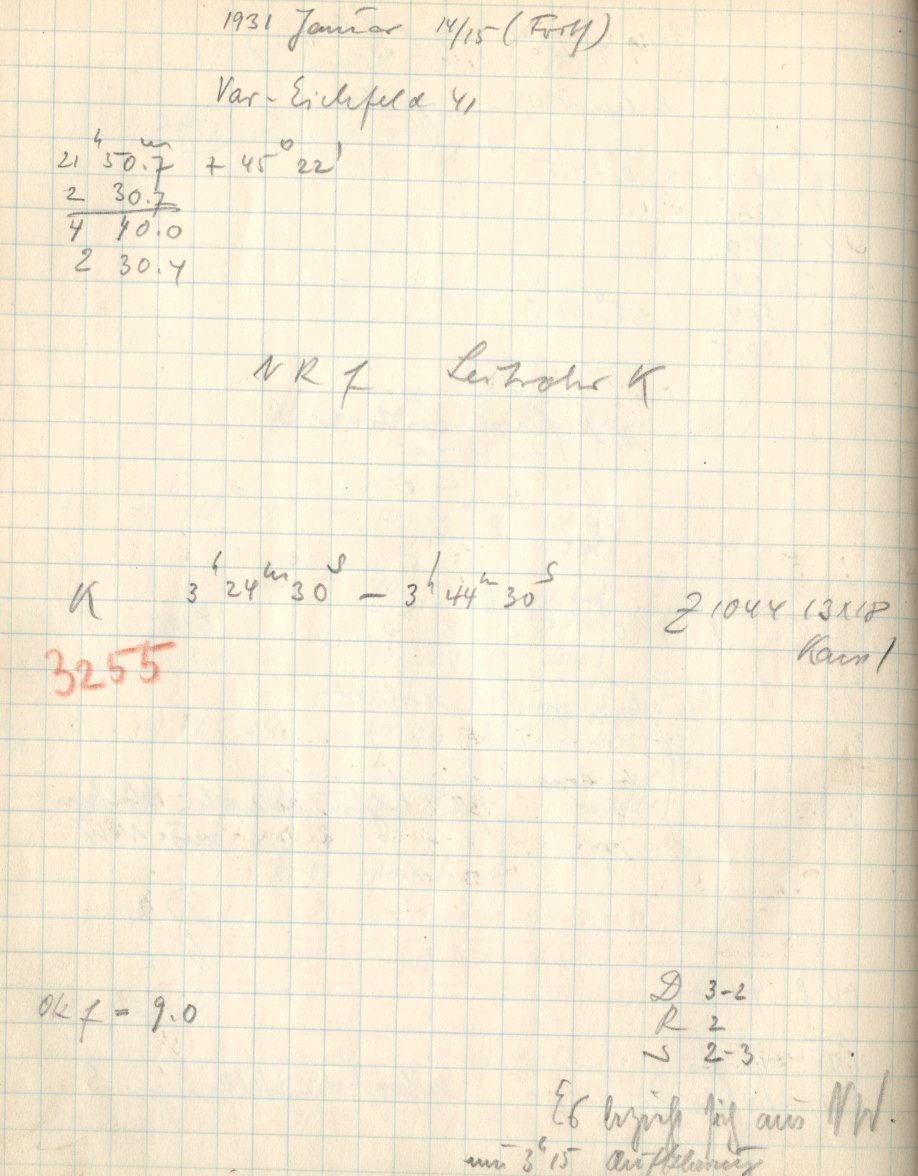 1931 Januar 14/15 (Forts)
Var-Eichfeld 41
21ʰ 50.7ᵐ + 45° 22'
2 30.7
4 40.0
2 30.4
N R f Leitrohr K
K 3ʰ 24ᵐ 30ˢ – 3ʰ 44ᵐ 30ˢ
Z 1044 13x18
Kam 1
3255
Ok f = 9.0
D 3-2
R 2
S 2-3
Es bezieht sich aus NW.
um 3ʰ 15 Aufklarung